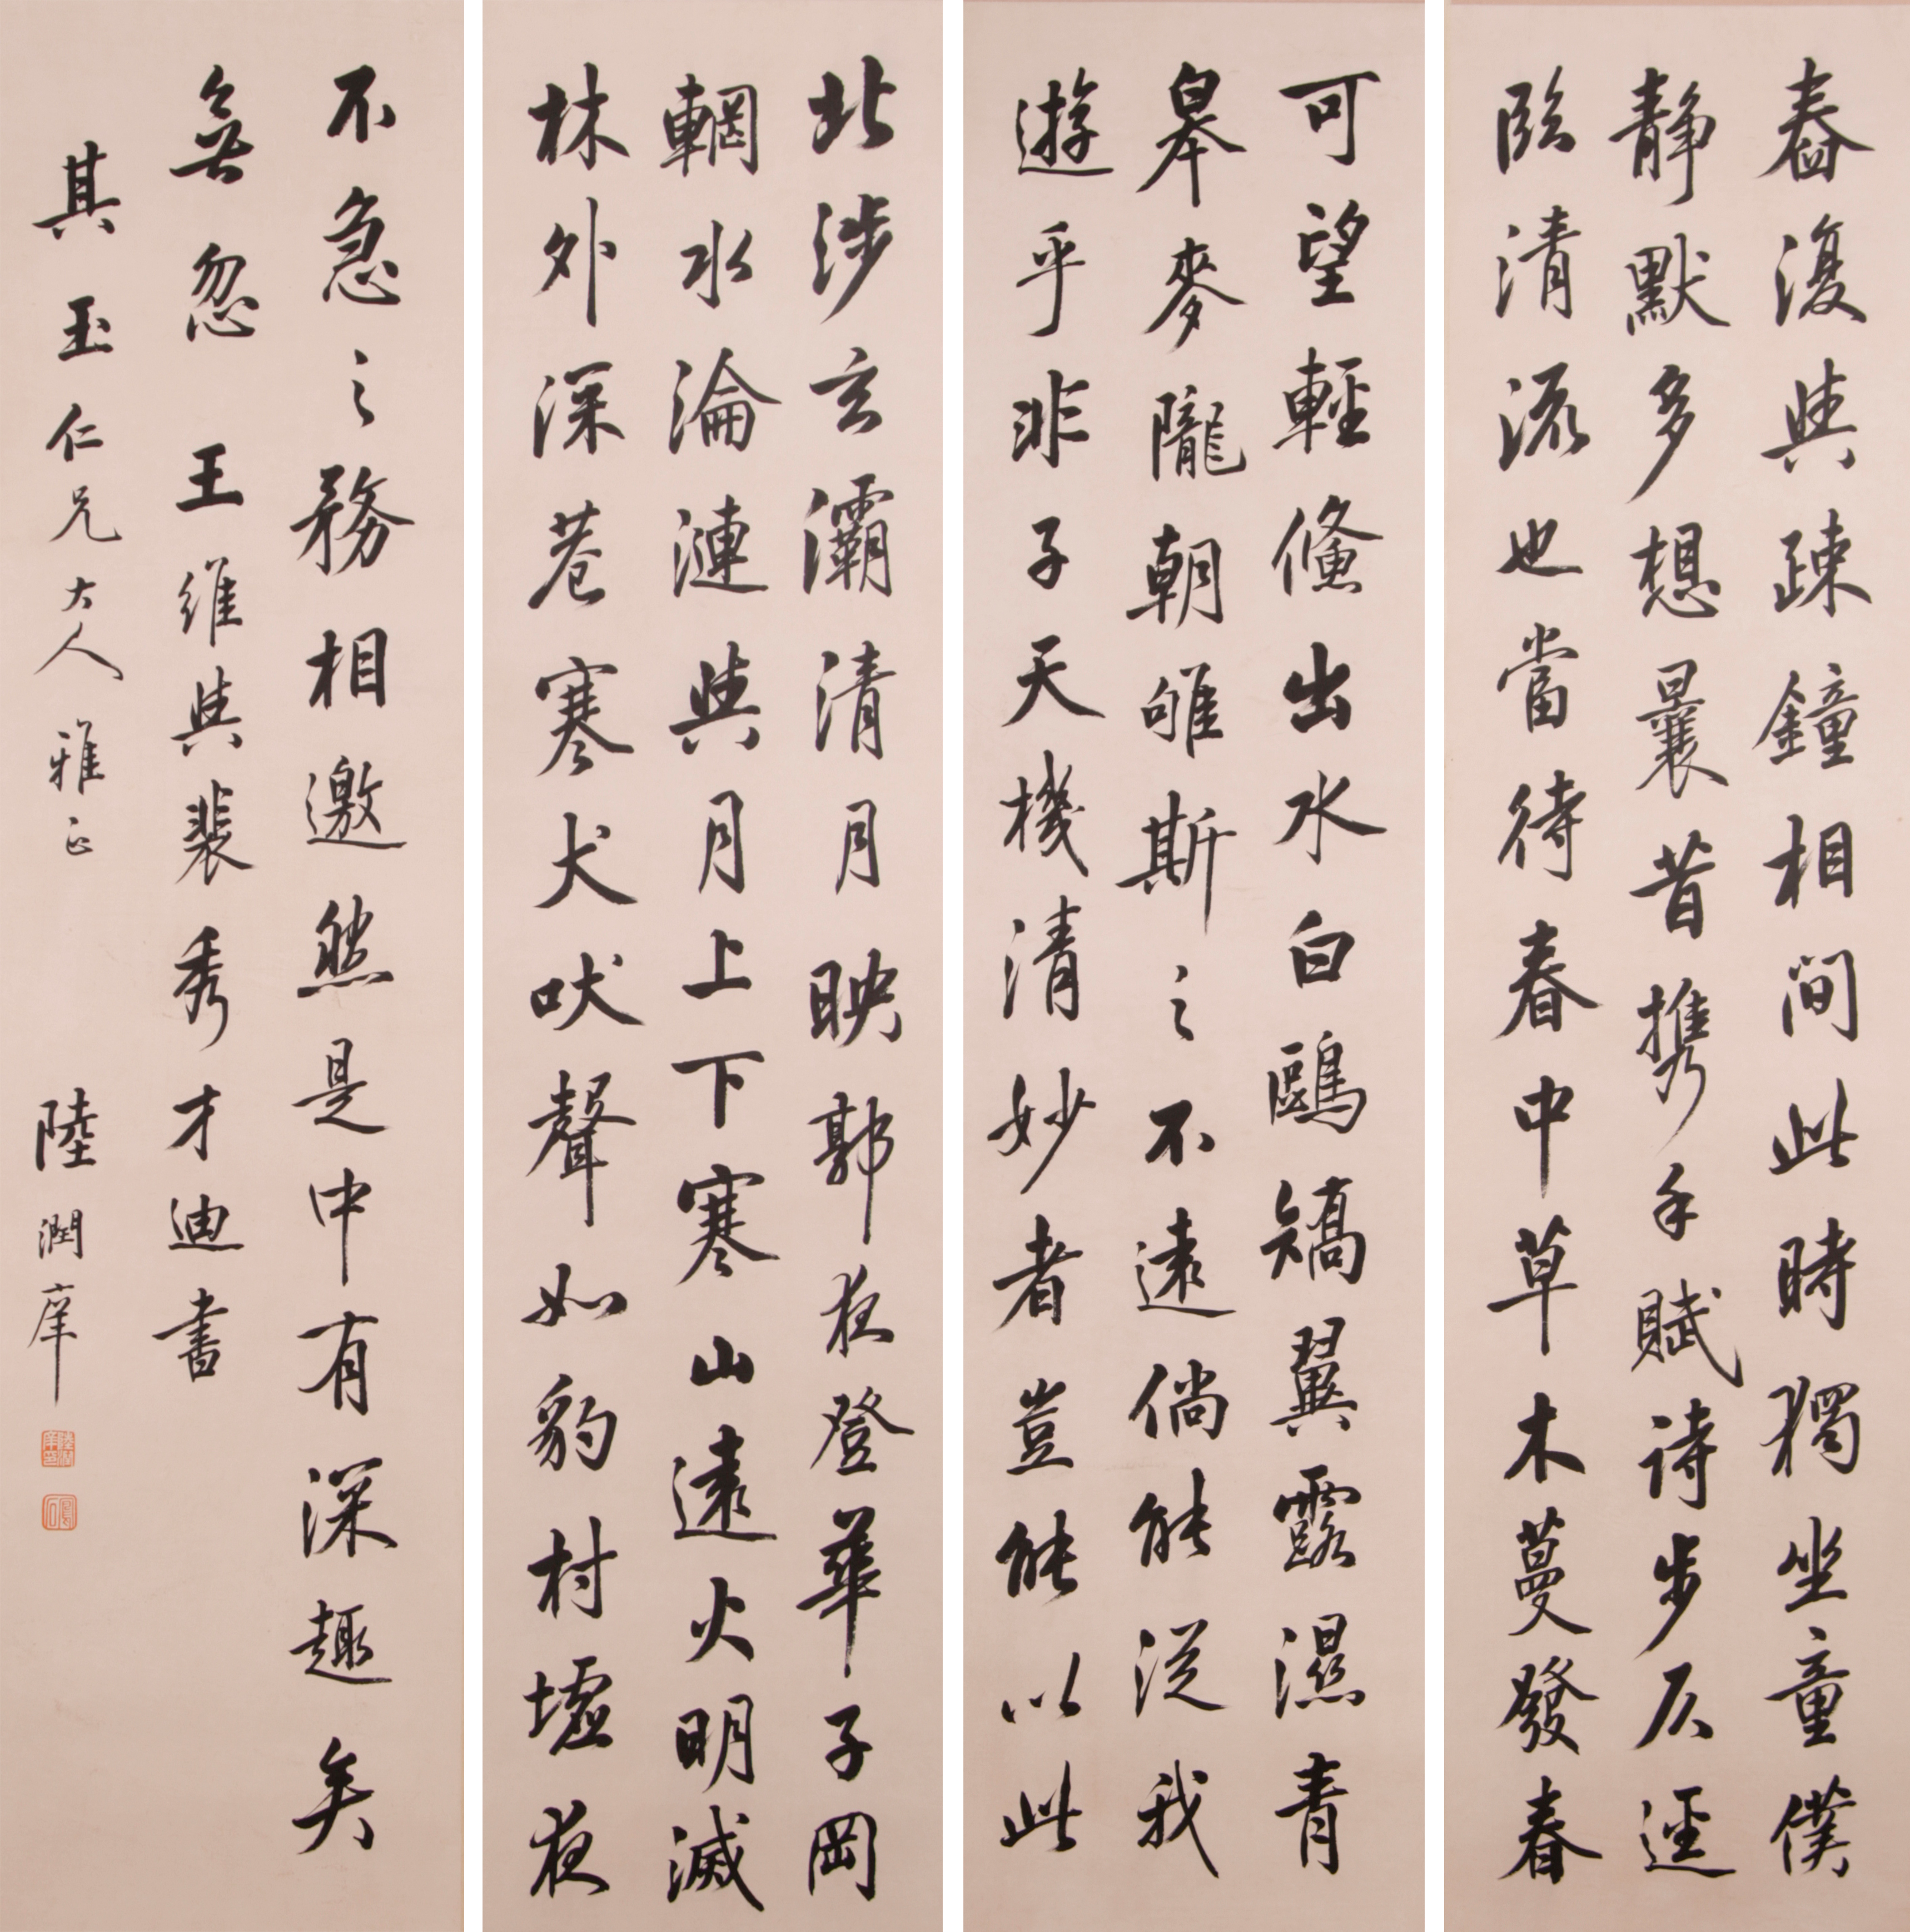 舂復與疎鐘相間此時獨坐童僕
靜默多想曩昔携手賦詩步仄逕
臨清流也當待春中草木蔓發春
可望輕鯈出水白鷗矯翼露濕青
皋麥隴朝雊斯之不遠倘能從我
遊乎非子天機清妙者豈能以此
北涉玄灞清月映郭夜登華子岡
輞水淪漣與月上下寒山遠火明滅
林外深巷寒犬吠聲如豹村墟夜
不急之務相邀然是中有深趣矣
無忽 王維與裴秀才迪書
其玉仁兄大人雅正 陸潤庠
陸潤庠印
鳳石